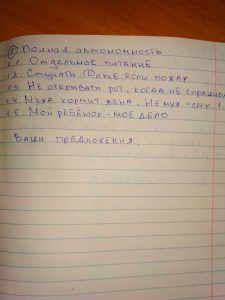 ① Полная автономность
1.1 Отдельное питание
1.2 Стучать. Даже если пожар
1.3 Не открывать рот, когда не спрашив
1.4 Мужа кормит жена. Не муж - сын.
1.5. Мой ребёнок - моё дело
Ваши предложения: